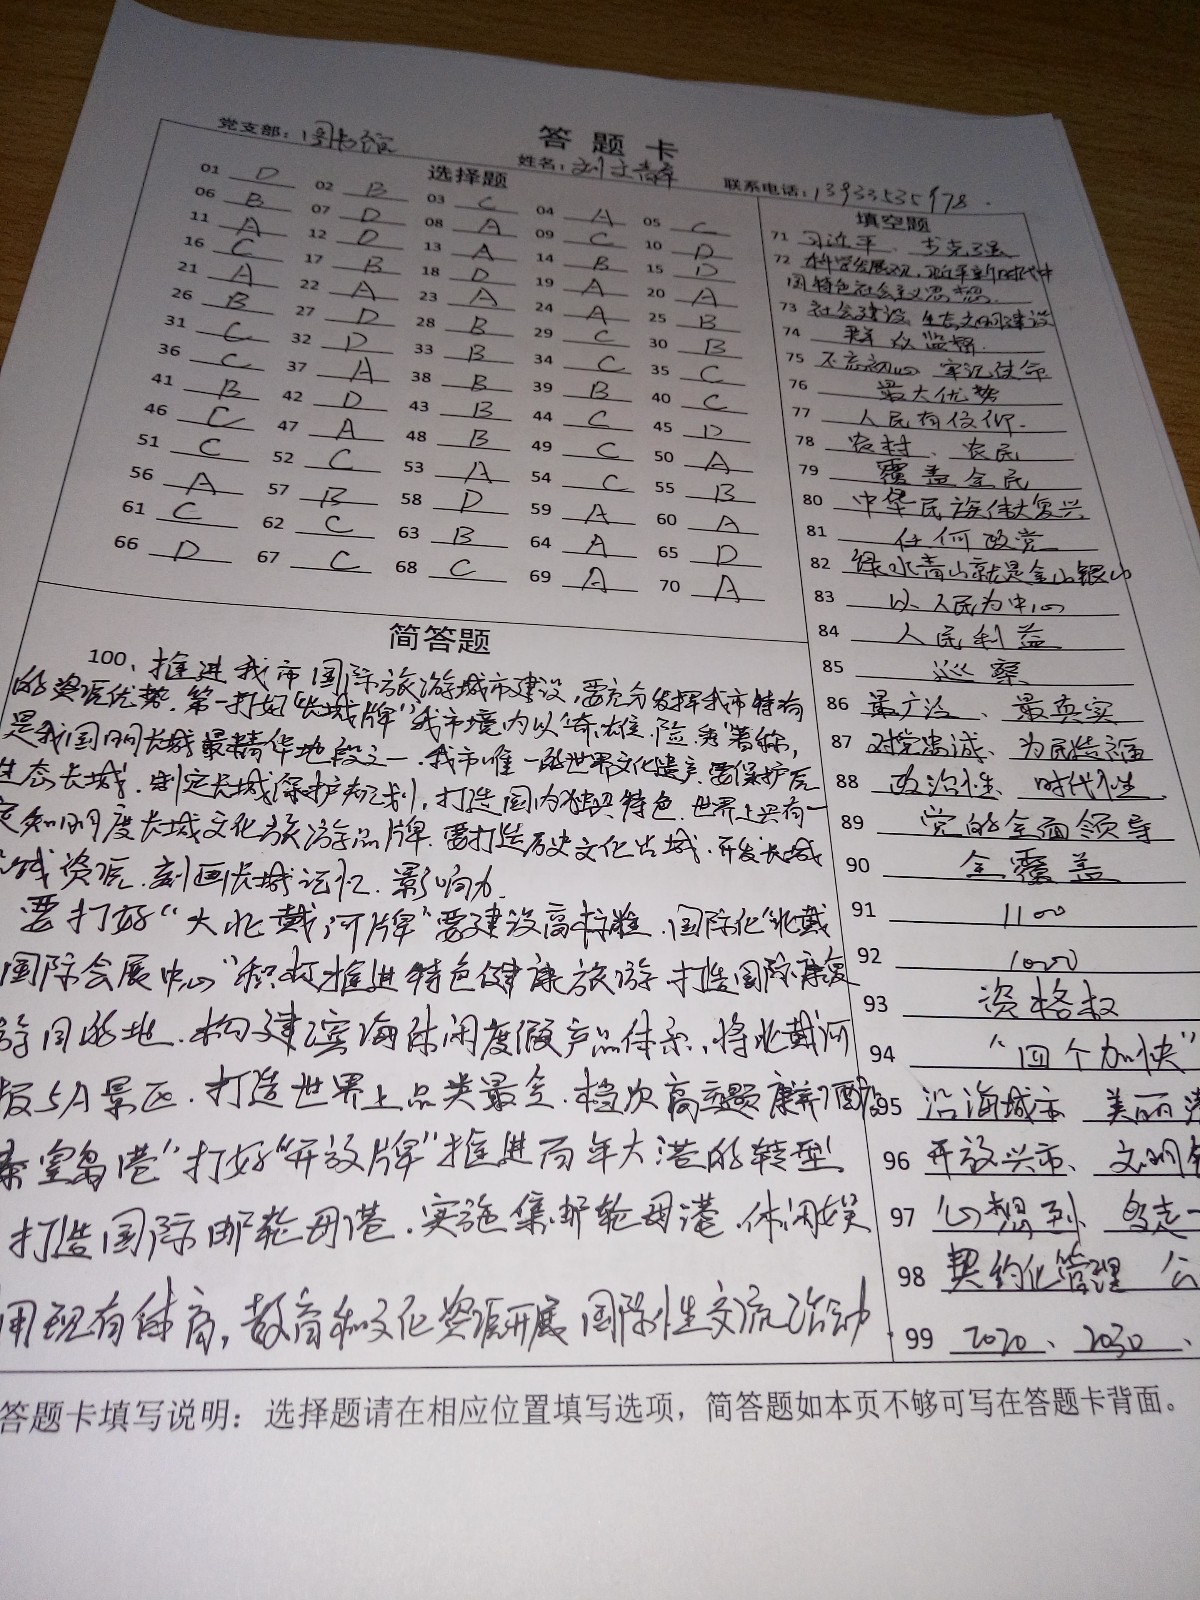 答题卡
党支部：图书馆 姓名： 联系电话：
选择题
01 D 02 B 03 C 04 A 05 C
06 B 07 D 08 A 09 C 10 D
11 A 12 D 13 A 14 B 15 D
16 C 17 B 18 D 19 A 20 A
21 A 22 A 23 A 24 A 25 B
26 B 27 D 28 B 29 C 30 B
31 C 32 D 33 B 34 C 35 C
36 C 37 A 38 B 39 B 40 C
41 B 42 D 43 B 44 C 45 D
46 C 47 A 48 B 49 C 50 A
51 C 52 C 53 A 54 C 55 B
56 A 57 B 58 D 59 A 60 A
61 C 62 C 63 B 64 A 65 D
66 D 67 C 68 C 69 A 70 A
填空题
71 习近平、李克强
72 科学发展观、习近平新时代中
国特色社会主义思想
73 社会建设 生态文明建设
74 群众监督
75 不忘初心 牢记使命
76 最大优势
77 人民有信仰
78 农村、农民
79 覆盖全民
80 中华民族伟大复兴
81 任何政党
82 绿水青山就是金山银山
83 以人民为中心
84 人民利益
85 巡察
86 最广泛、最真实
87 对党忠诚、为民造福
88 政治性、时代性、
89 党的全面领导
90 全覆盖
91 1100
92 1000
93 资格权
94 "四个加快"
95 沿海城市 美丽
96 开放兴市、文明
97 心想到
98 契约化管理 公
99 2020、2030、
简答题
100、推进我市国际旅游城市建设，要充分发挥我市特有
的资源优势，第一打好"长城牌"我市境内以奇、雄、险、秀著称，
是我国明长城最精华地段之一，我市唯一的世界文化遗产，要保护原
生态长城，制定长城保护规划，打造国内独具特色、世界上具有一
定知明度长城文化旅游品牌，要打造历史文化古城，开发长城
资源，刻画长城记忆、影响力
要打好"大北戴河牌"要建设高标准、国际化"北戴
国际会展中心"积极推进特色健康旅游，打造国际康复
游目的地，构建滨海休闲度假产品体系，将北戴河
版5A景区，打造世界上品类最全、档次高主题
秦皇岛港"打好"开放牌"推进百年大港的转型
打造国际邮轮母港，实施集邮轮母港、休闲娱
用现有体育，教育和文化资源开展国际性交流活动
答题卡填写说明：选择题请在相应位置填写选项，简答题如本页不够可写在答题卡背面。